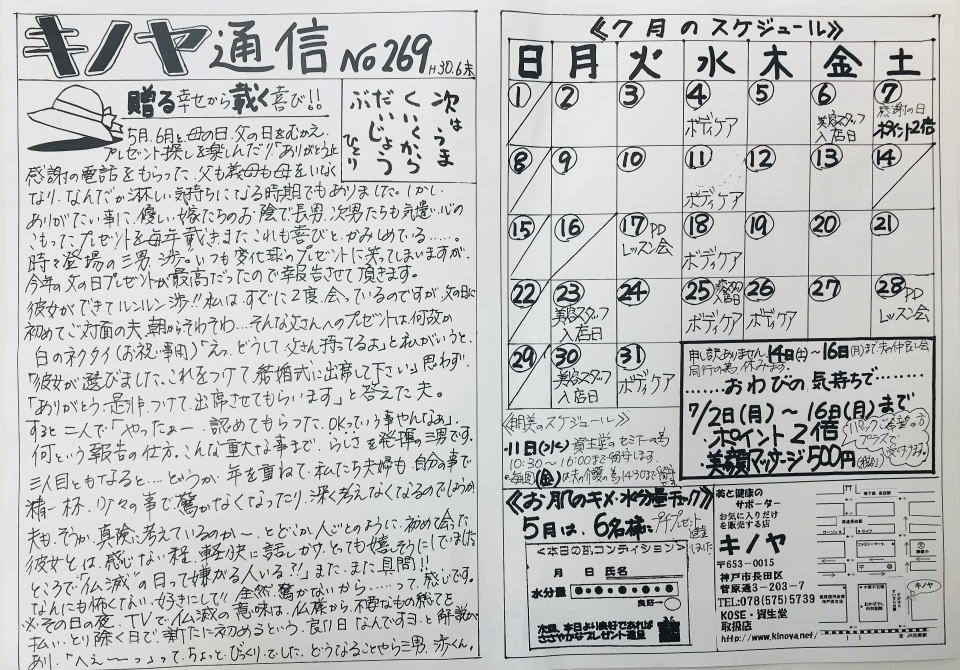 キノヤ通信 No269 H30.6末
贈る幸せから戴く喜び!!
次はうま
くいくから
だいじょう
ぶ ひとり
5月、6月と、母の日、父の日をむかえ、
プレゼント探しを楽しんだり「ありがとう」と
感謝の電話をもらった、父も義母も母をいなく
なり、なんだか淋しい気持ちになる時期でもありました。しかし、
ありがたい事に、優しい嫁たちのお陰で長男、次男たちも気遣い心の
こもったプレゼントを毎年戴き、またこれも喜びと、かみしめている……。
時々登場の三男、渉。いつも変化球のプレゼントに笑ってしまいますが、
今年の父の日プレゼントが最高だったので報告させて頂きます。
彼女ができてルンルン渉!!私はすでに2度、会っているのですが、父の日に
初めてご対面の夫、朝からそわそわ…そんな父さんへのプレゼントは何故か
白のネクタイ(お祝い事用)「えっ、どうして父さん持ってるよ」と私がいうと、
「彼女が選びました。これをつけて結婚式に出席して下さい」思わず、
「ありがとう、是非、つけて、出席させてもらいます」と答えた夫。
すると二人で「やったぁー 認めてもらった、OKっていう事やんなぁ」。
何という報告の仕方。こんな重大な事まで、らしさを発揮の三男です。
三人目ともなると…というか、年を重ねて、私たち夫婦も、自分の事で
精一杯、少々の事で驚かなくなったり、深く考えなくなるのでしょうか
夫も、そうか、真険に考えているのか〜、とどこか人ごとのように、初めて会った
彼女とは、感じない程、軽快に話しかけ、とっても嬉しそうにしていました
ところで「仏滅」の日って嫌がる人いる?!」また、また質問!!
なんにも怖くない、好きにして!! 全然、驚かないから……って感じです。
※その日の夜、TVで仏滅の意味は、仏様から、不要なもの総てを
払い、とり除く日で、新たに初めるという、良い日なんですヨ、と解説が
あり、「へえーーっ」って、ちょっと、びっくりでした。どうなることやら三男、渉くん。
《7月のスケジュール》
日 月 火 水 木 金 土
1 2 3 4 ボディケア 5 6 美容スタッフ入店日 7 感謝の日 ポイント2倍
8 9 10 11 ボディケア 12 13 14
15 16 17 PDレッスン会 18 ボディケア 19 20 21
22 23 美容スタッフ入店日 24 25 美容スタッフ入店日 ボディケア 26 ボディケア 27 28 PDレッスン会
29 30 美容スタッフ入店日 31 ボディケア
申し訳ありません。14日(土)〜16日(月)まで夫の仲良し会
同行の為、休みます。
……おわびの気持ちで……
7/2日(月)〜16日(月)まで
ポイント2倍
美顔マッサージ500円(税込)
パックご希望の方プラスで受けます。
《明美のスケジュール》
・11日(水) 資生堂のセミナーの為
10:30〜16:00まで留守します。
・毎週(金)は夫の介護の為14:30まで留守
《お肌のキメ・水分量チェック》
5月は、6名様にプチプレゼント進呈しました
<本日の肌コンディション>
月 日 氏名
水分量
良好
次回、本日より良好であれば
ささやかなプレゼント進呈
美と健康の
サポーター
お気に入りだけ
を販売する店
キノヤ
〒653-0015
神戸市長田区
菅原通3-203-7
TEL:078(575)5739
KOSE・資生堂
取扱店
http://www.kinoya.net/
ローソン
ライフ
ファミリーマート
キノヤ